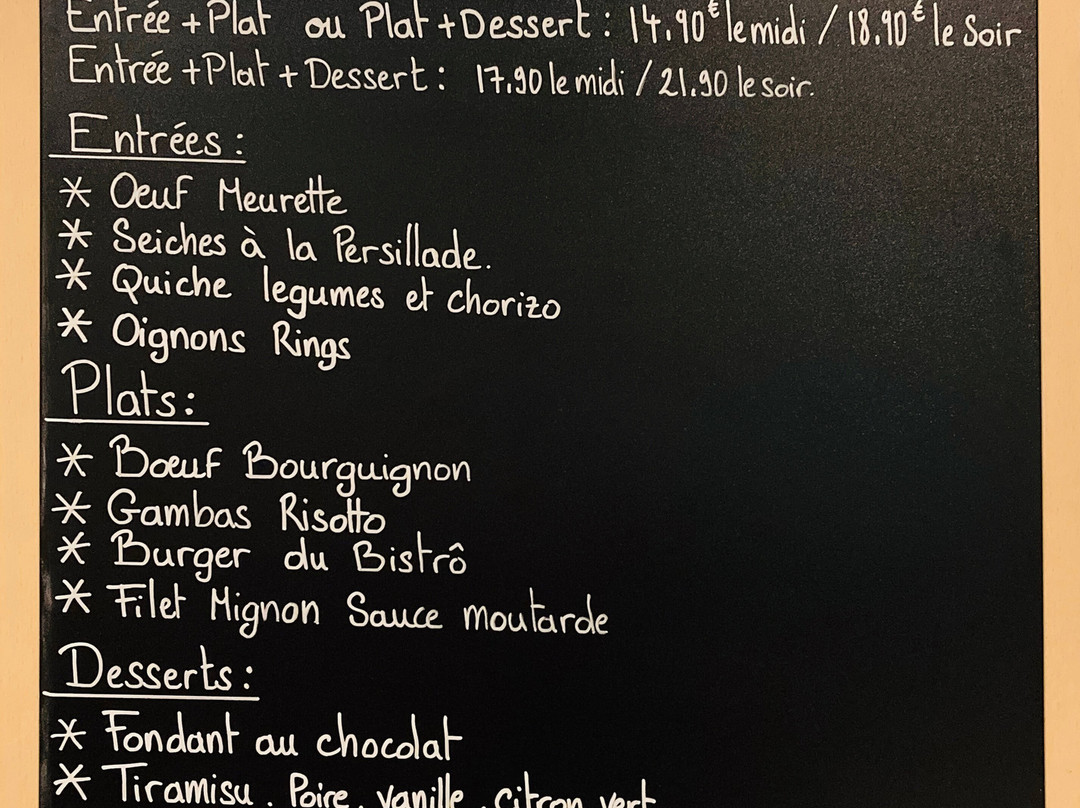 Entrée + Plat ou Plat + Dessert : 14.90€ le midi / 18.90€ le Soir
Entrée + Plat + Dessert : 17.90 le midi / 21.90 le soir.
Entrées :
* Oeuf Meurette
* Seiches à la Persillade.
* Quiche legumes et chorizo
* Oignons Rings
Plats :
* Boeuf Bourguignon
* Gambas Risotto
* Burger du Bistrô
* Filet Mignon Sauce moutarde
Desserts :
* Fondant au chocolat
* Tiramisu . Poire . vanille . citron vert